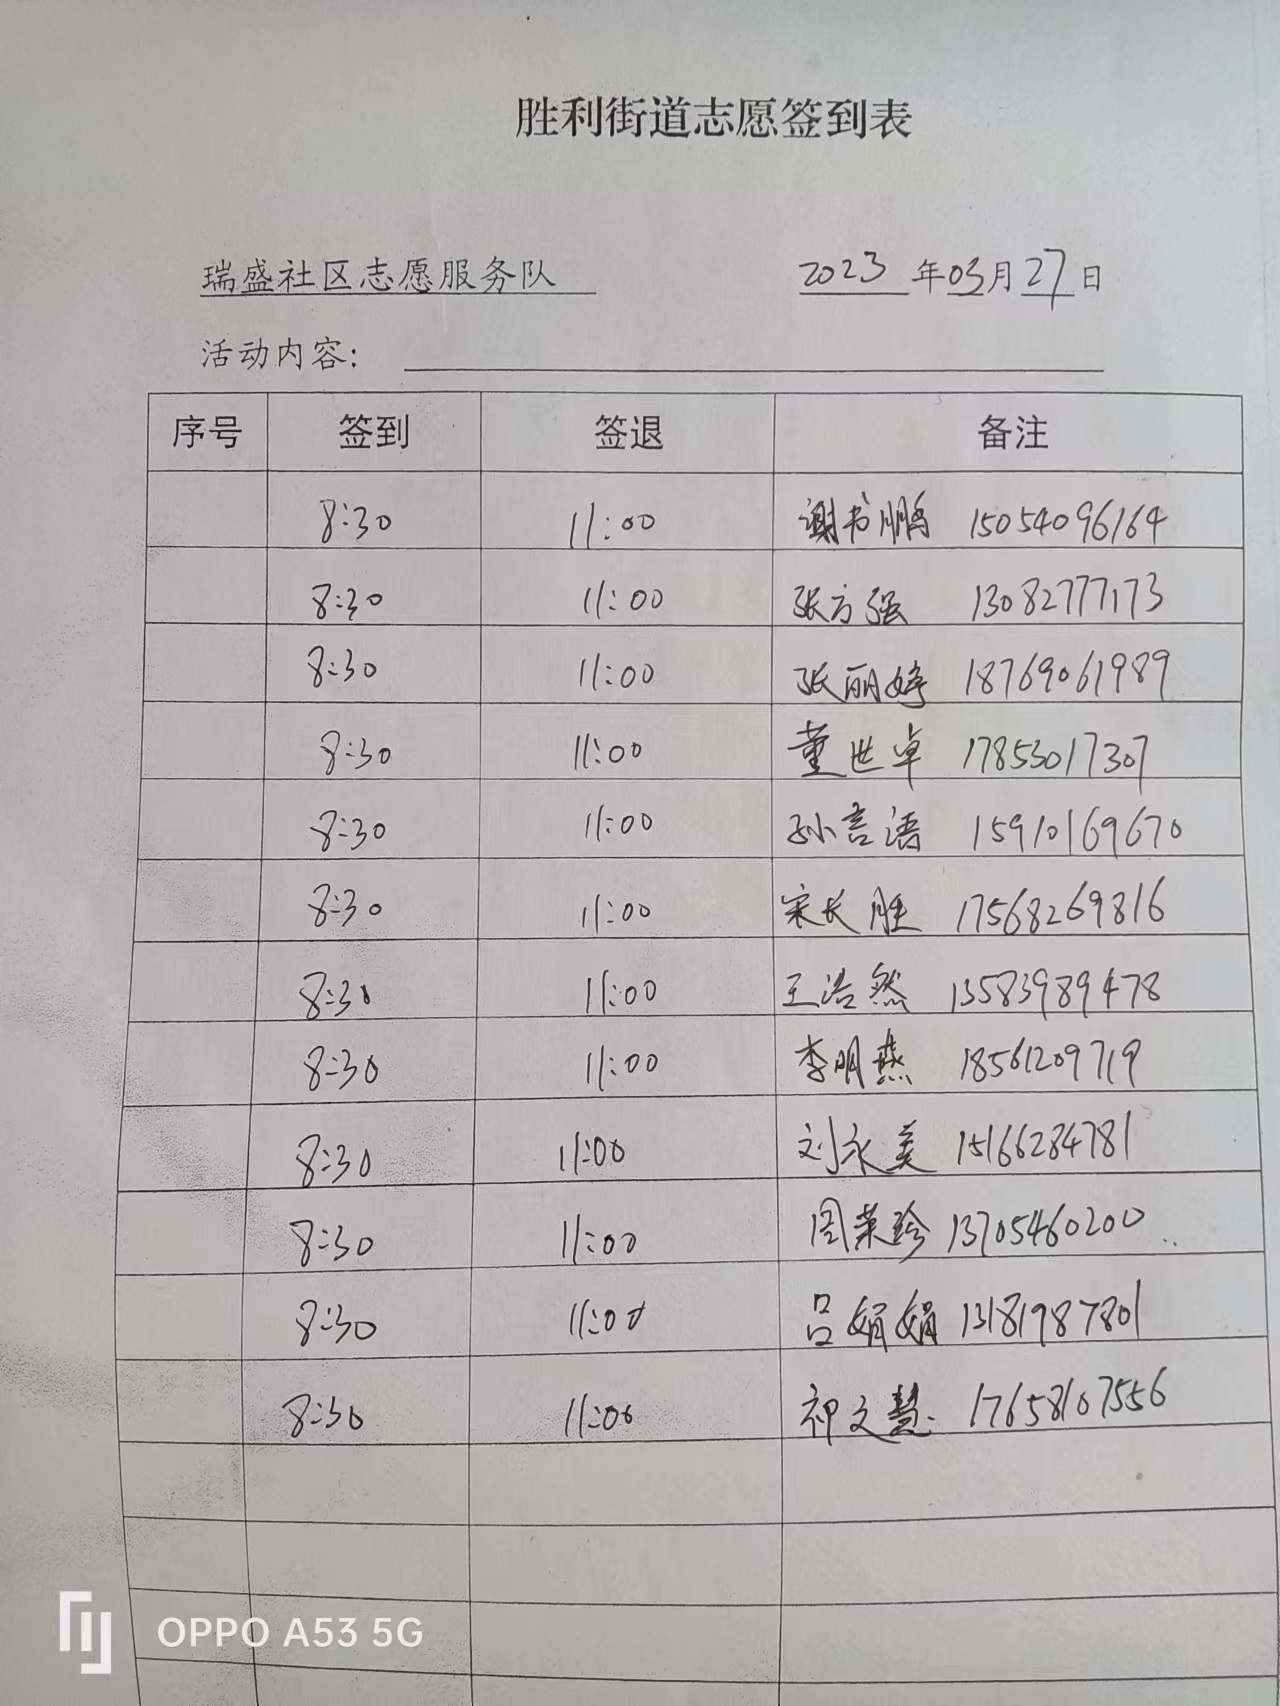 胜利街道志愿签到表
瑞盛社区志愿服务队 2023年03月27日
活动内容:
序号 签到 签退 备注
8:30 11:00 谢书鹏 15054096164
8:30 11:00 张方强 13082777173
8:30 11:00 张丽婷 18769061989
8:30 11:00 董世卓 17853017307
8:30 11:00 孙言语 15910169670
8:30 11:00 宋长胜 17568269816
8:30 11:00 王浩然 13583989478
8:30 11:00 李明燕 18561209719
8:30 11:00 刘永美 15166284781
8:30 11:00 周荣珍 13705460200
8:30 11:00 吕娟娟 13181987801
8:30 11:00 祁文慧 17658107556
OPPO A53 5G